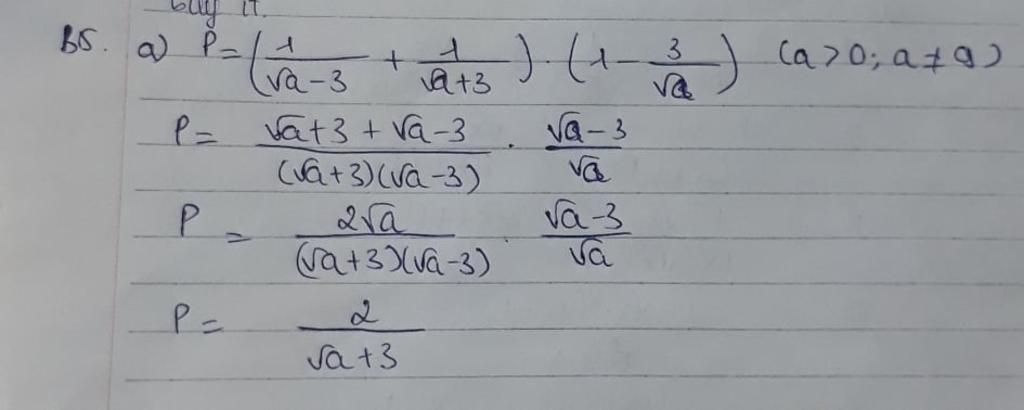 buy it.
B5. a) P = (1/(√a-3) + 1/(√a+3)) . (1 - 3/√a) (a>0; a≠9)
P = (√a+3+√a-3)/((√a+3)(√a-3)) . (√a-3)/√a
P = 2√a/((√a+3)(√a-3)) . (√a-3)/√a
P = 2/(√a+3)